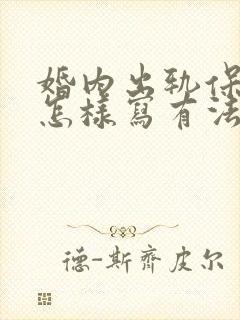 婚内出轨保
怎樣寫有法
德-斯齊皮尔